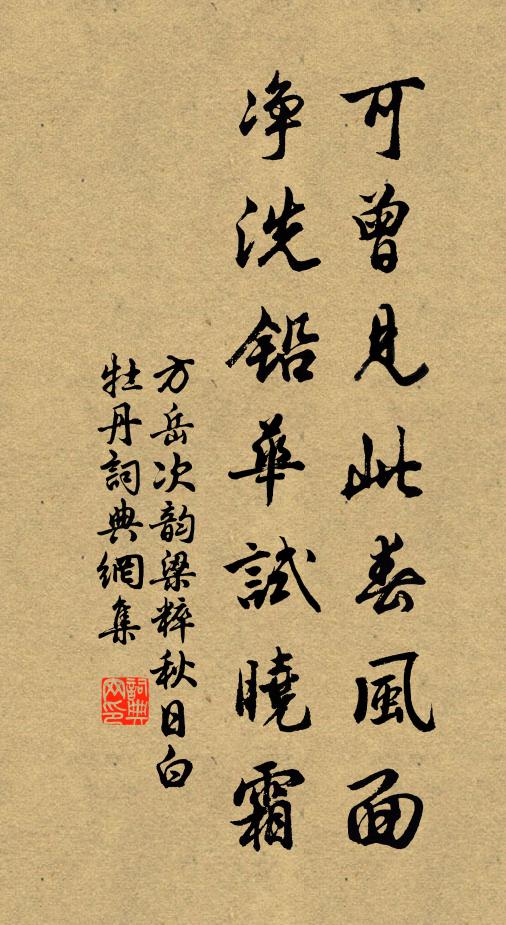 可曾見此春風面
净洗鉛華試曉霜
方岳次韵梁粹秋日白
牡丹詞典網集
詞典
网印